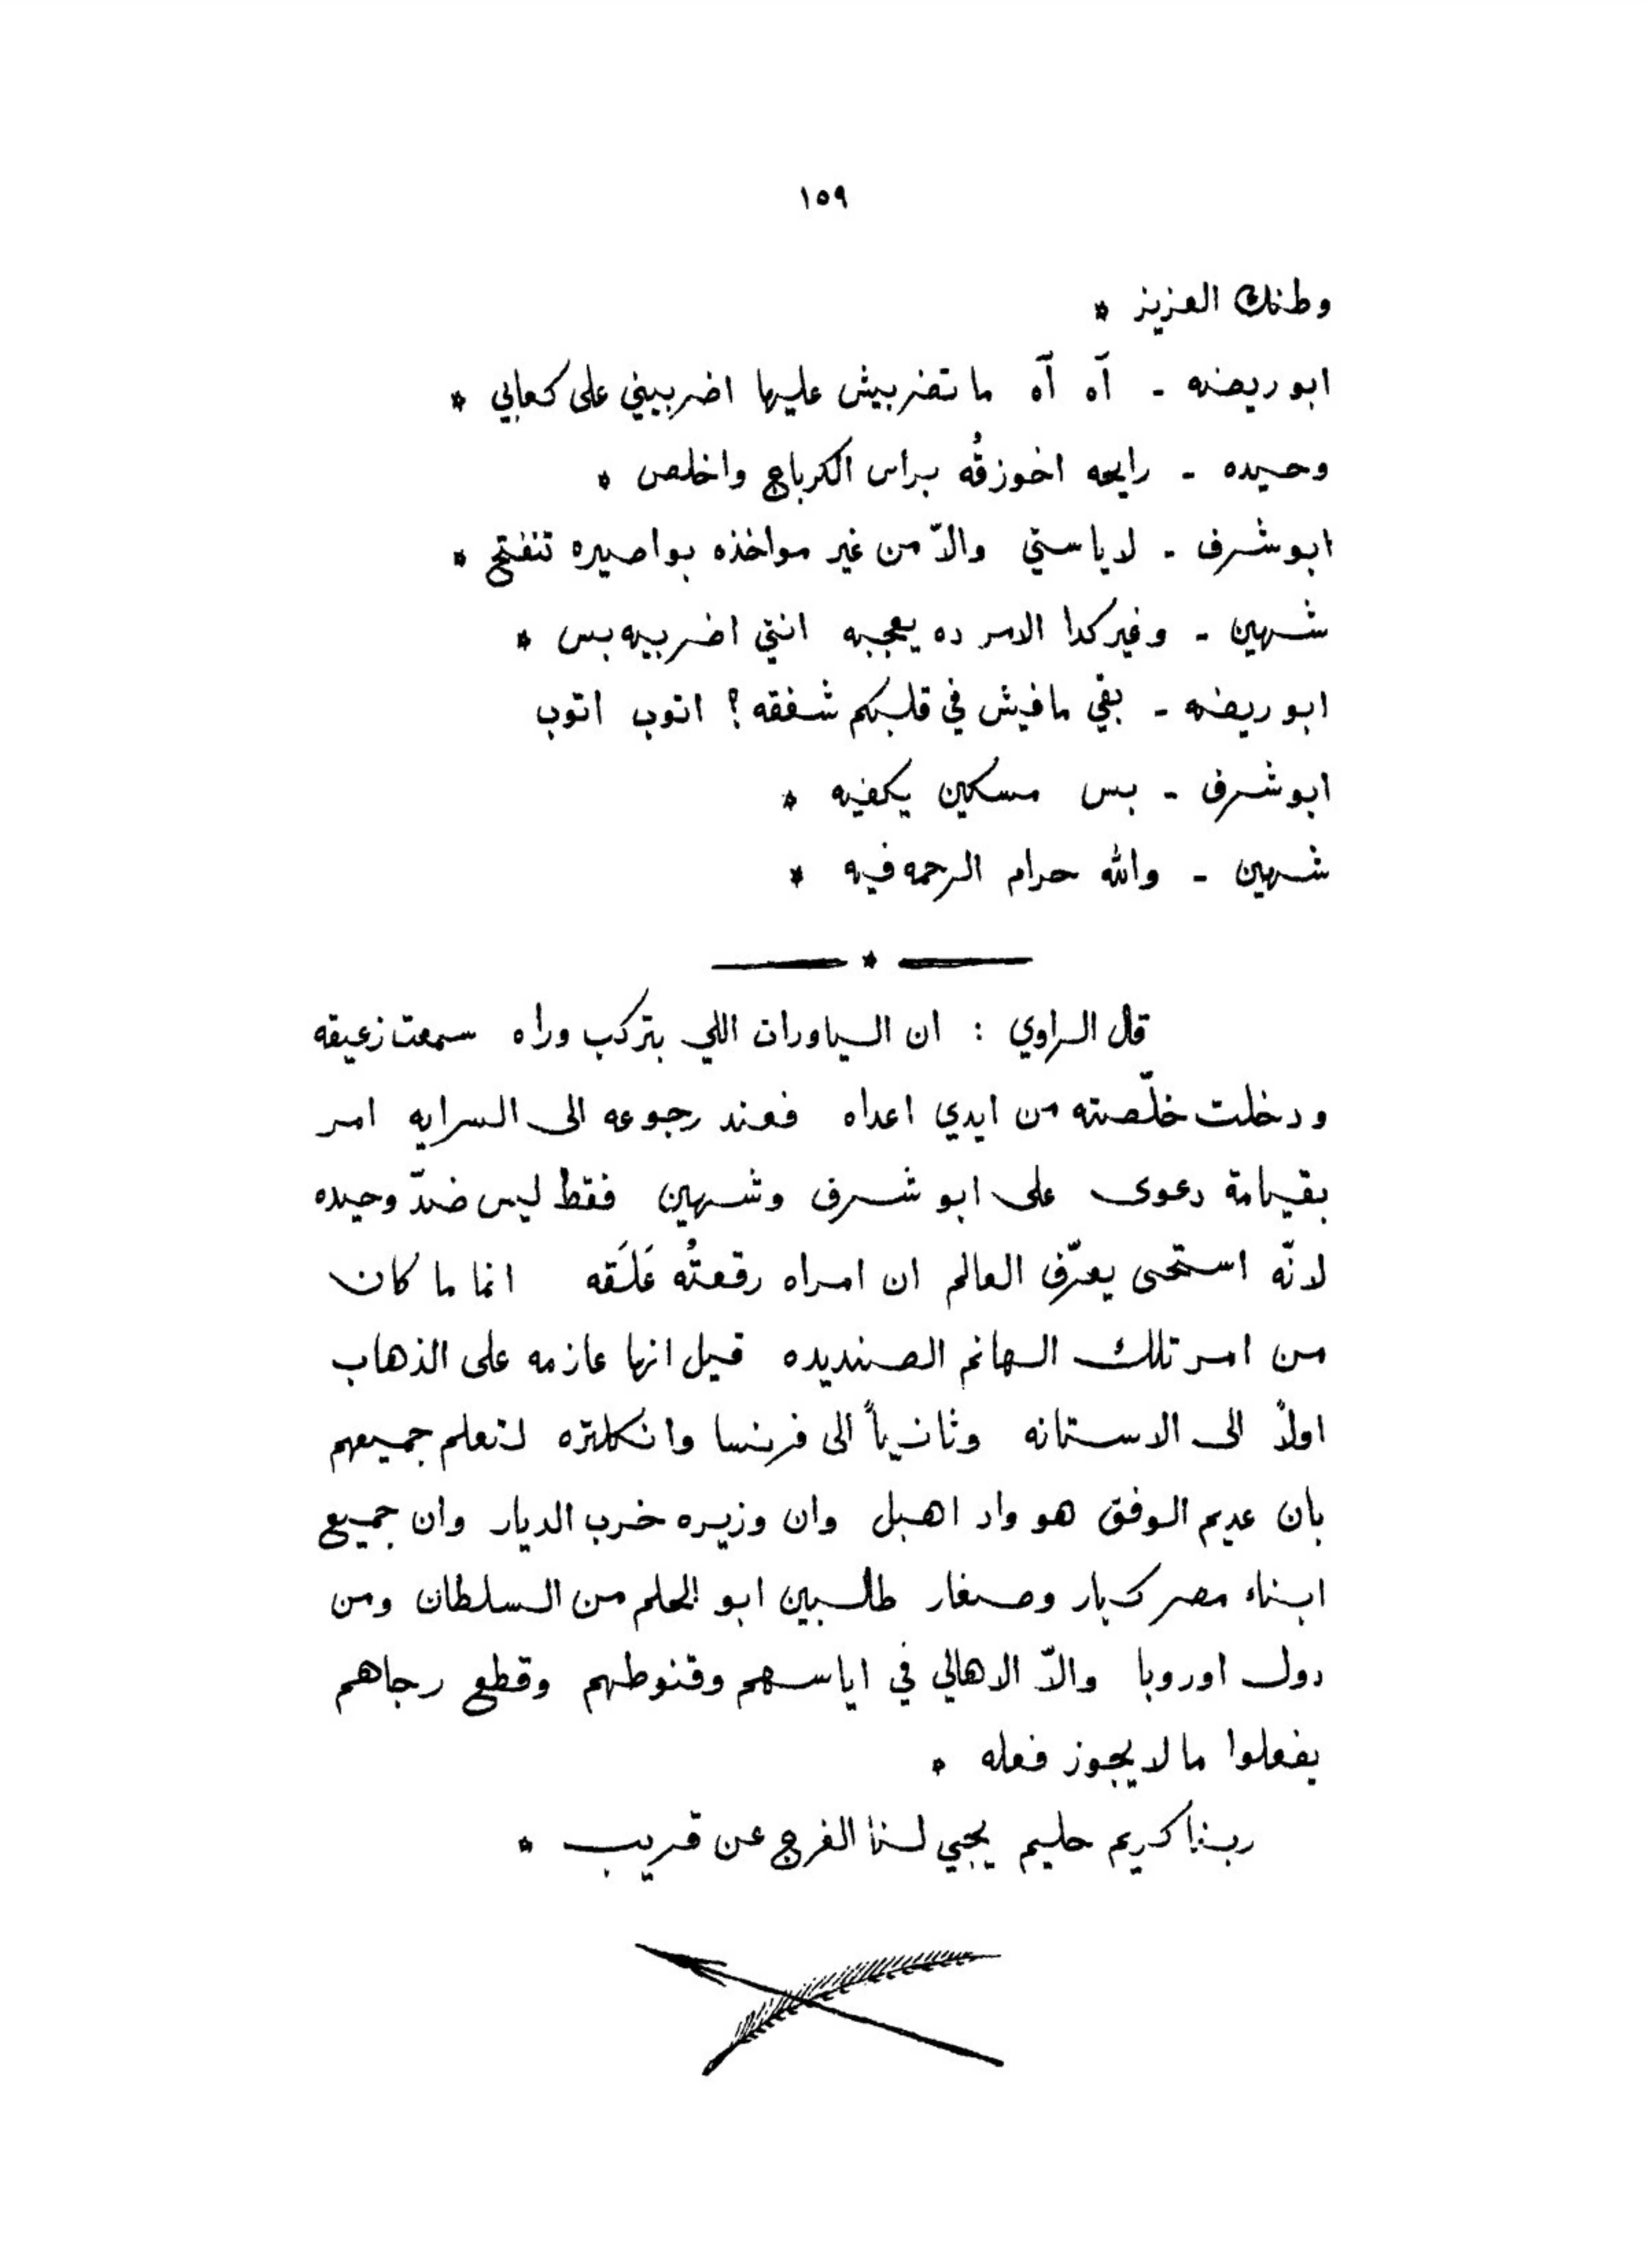 ١٥٩
وطنك العزيز *
ابو ريضه - آه آه ما تضربيش عليها اضربيني على كعابي *
وحيده - رايحه اخوزقُه براس الكرباج واخلص *
ابو شرف - لا يا ستي والاّ من غير مواخذه بواصيره تنفتح *
شهين - وغير كدا الامر ده يعجبه انتي اضربيه بس *
ابو ريضه - بقي مافيش في قلبكم شفقه؟ اتوب اتوب
ابو شرف - بس مسكين يكفيه *
شهين - والله حرام الرحمه فيه *
*
قال الراوي : ان الياورات اللي بتركب وراه سمعت زعيقه
ودخلت خلّصته من ايدي اعداه فعند رجوعه الى السرايه امر
بقيامة دعوى على ابو شرف وشهين فقط ليس ضدّ وحيده
لانّه استحى يعرّف العالم ان امراه رقعتُه عَلَقه انما ما كان
من امر تلك الهانم الصنديده قيل انها عازمه على الذهاب
اولاً الى الاستانه وثانياً الى فرنسا وانكلتره لتعلم جميعهم
بان عديم الوفق هو واد اهبل وان وزيره خرب الديار وان جميع
ابناء مصر كبار وصغار طالبين ابو الحلم من السلطان ومن
دول اوروبا والاّ الاهالي في اياسهم وقنوطهم وقطع رجاهم
يفعلوا ما لا يجوز فعله *
ربنا كريم حليم يجيي لنا الفرج عن قريب *